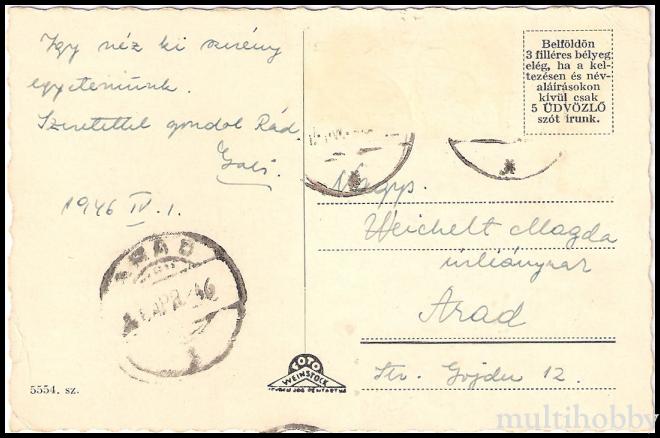 Így néz ki szerény
egyetemünk.
Szeretettel gondol Rád
Gabi.
1946 IV. 1.
Belföldön
3 filléres bélyeg
elég, ha a kel-
tezésen és név-
aláírásokon
kívül csak
5 ÜDVÖZLŐ
szót írunk.
Nagys.
Weichelt Magda
úrliánynak
Arad
Str. Gojdu 12.
ARAD
APR. 46
FOTO
WEINSTOCK
5554. sz.
multihobby